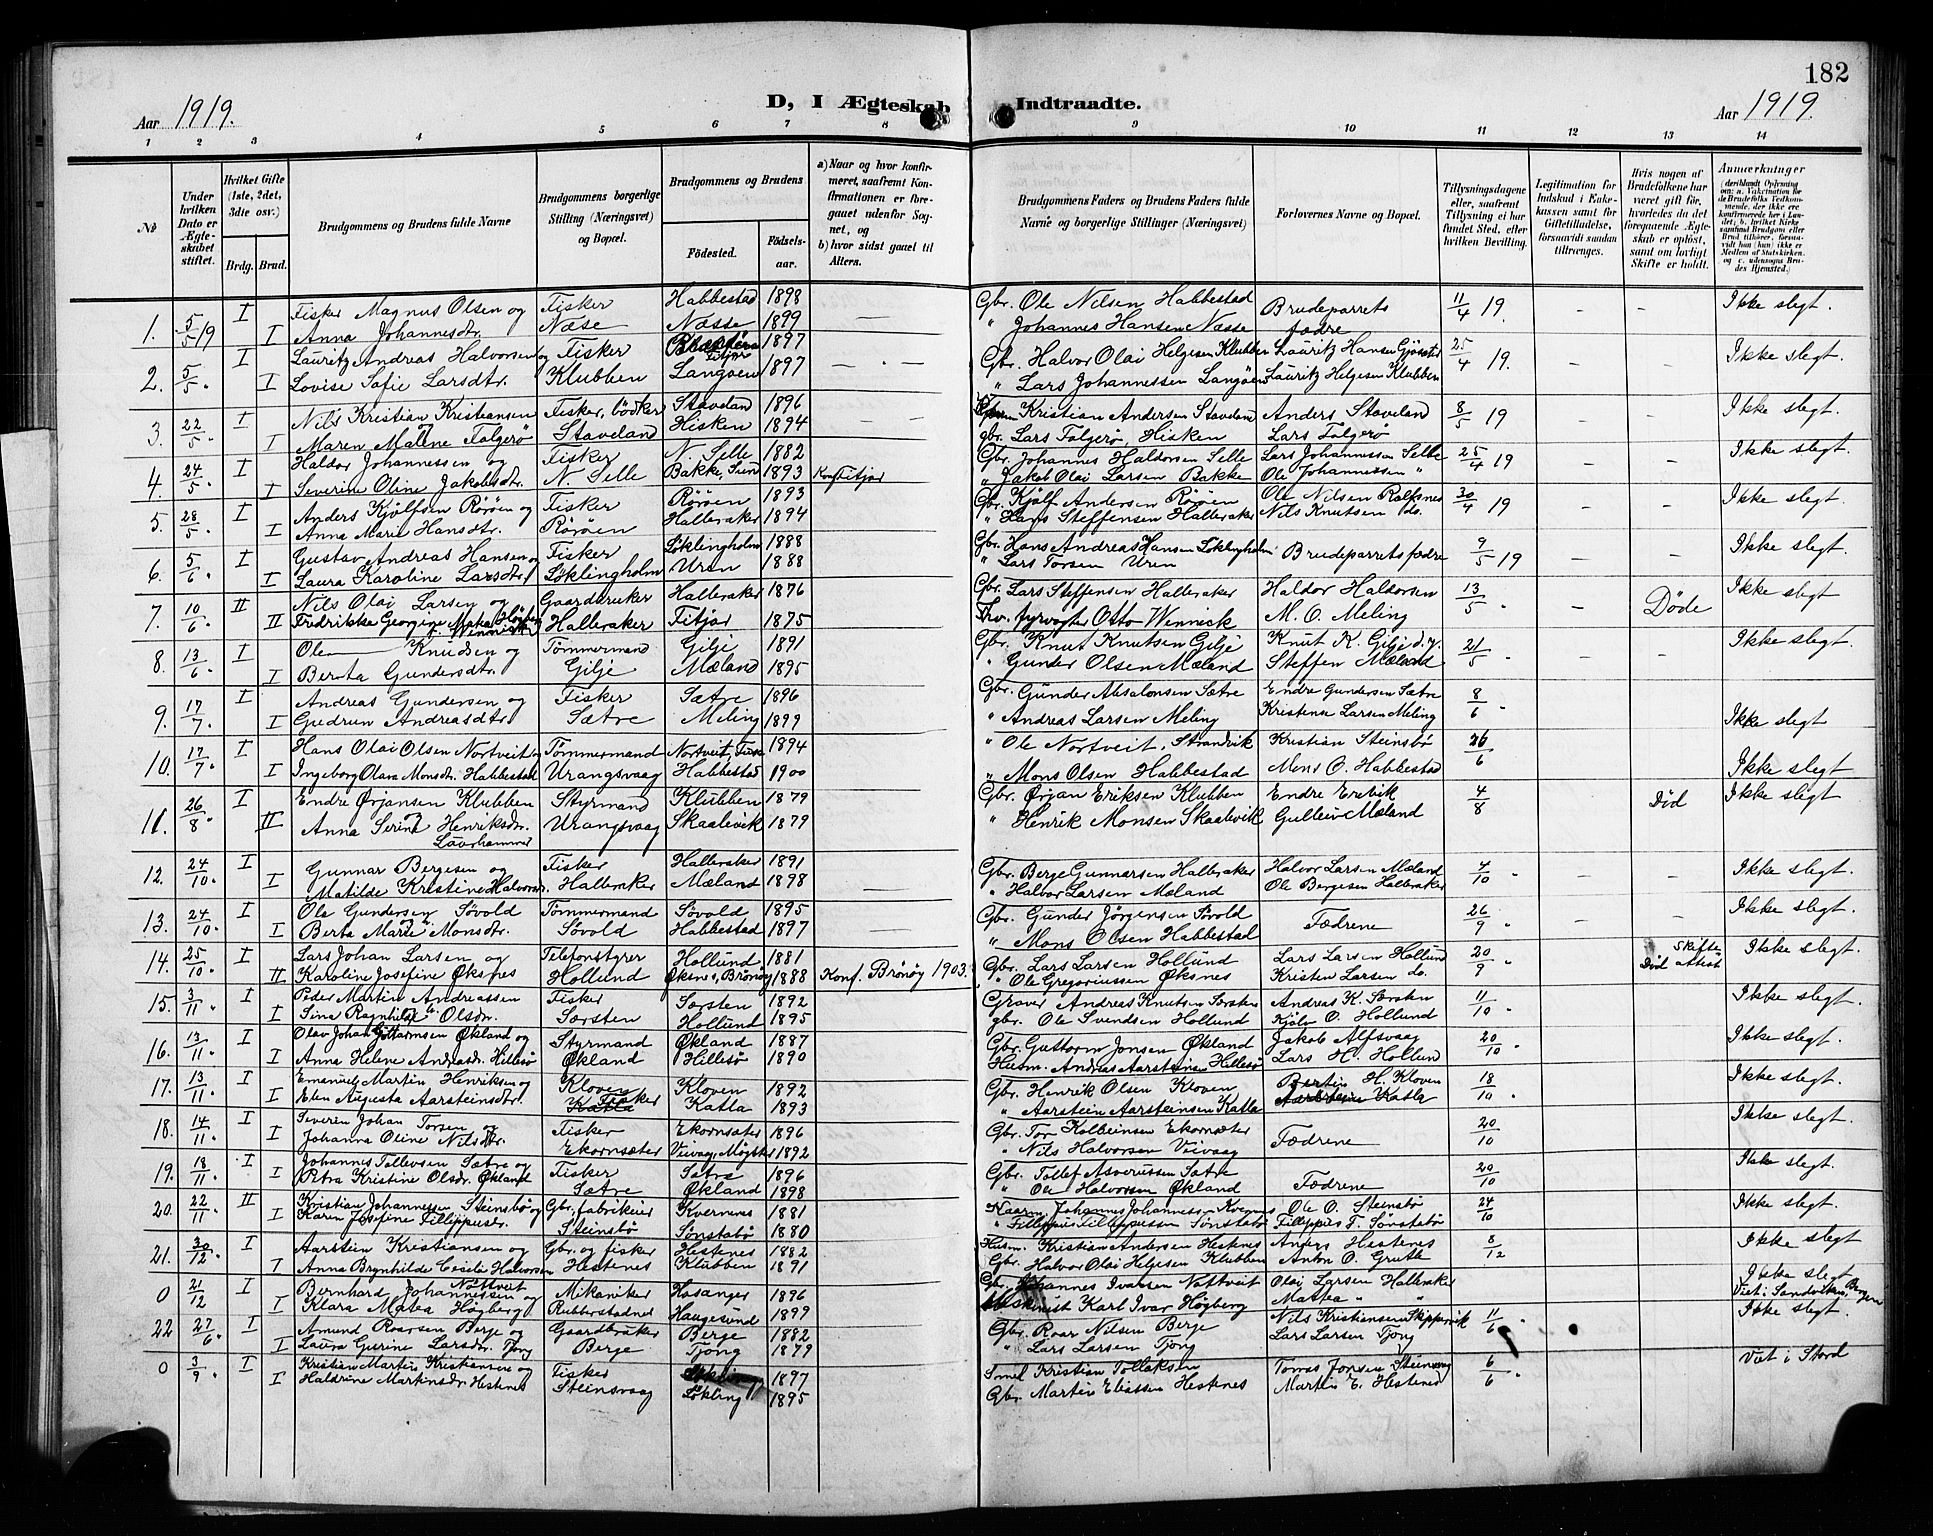 182
Aar 1919.
D, I Ægteskab Indtraadte.
Aar 1919.
1 2 3 4 5 6 7 8 9 10 11 12 13 14
№
Under hvilken Dato er Ægteskabet stiftet.
Hvilket Gifte (1ste, 2det, 3die osv.)
Brdg. Brud.
Brudgommens og Brudens fulde Navne
Brudgommens borgerlige Stilling (Næringsvei) og Bopæl.
Brudgommens og Brudens
Fødested. Fødselsaar.
a) Naar og hvor konfirmeret, saafremt Konfirmationen er foregaaet udenfor Sognet, og
b) hvor sidst gaaet til Alters.
Brudgommens Faders og Brudens Faders fulde Navne og borgerlige Stillinger (Næringsvei)
Forlovernes Navne og Bopæl.
Tillysningsdagene eller, saafremt Tillysning ei har fundet Sted, efter hvilken Bevilling.
Legitimation for Indskud i Enkekassen samt for Giftetilladelse, forsaavidt saadan tiltrænges.
Hvis nogen af Brudefolkene har været gift før, hvorledes da det foregaaende Ægteskab er opløst, samt om lovligt Skifte er holdt.
Anmærkninger
1. 5/5 19 I Fisker Magnus Olsen og Fisker Habbestad 1898 Gbr. Ole Nilsen Habbestad Brudeparrets 11/4 19. Ikke slegt.
I Anna Johannesdtr. Næse Næsse 1899 " Johannes Hansen Næsse fædre
2. 5/5 I Lauritz Andreas Halvorsen og Fisker 1897 Gbr. Halvor Olai Helgesen Klubben Lauritz Hansen 25/4 19. Ikke slegt.
I Lovise Sofie Larsdtr. Klubben Langøen 1897 " Lars Johannessen Langøen Lauritz Helgesen Klubben
3. 22/5 I Nils Kristian Kristiansen Fisker, bödker Staveland 1896 Kristian Andersen Staveland Anders Staveland 8/5 19 Ikke slegt.
I Maren Malene Folgerø Staveland Hisken 1894 gbr. Lars Folgerø, Hisken Lars Folgerø
4. 24/5 I Haldor Johannessen og Fisker N. Selle 1882 Gbr. Johannes Haldorsen Selle Lars Johannessen Selle 25/4 19 Ikke slegt.
I Severine Oline Jakobsdtr. N. Selle Bakke, 1893 Konf Fitjar " Jakob Olai Larsen Bakke Ole Johannessen "
5. 28/5 I Anders Kjølfsen Rörøen og Fisker Rörøen 1893 Gbr. Kjölf Andersen Rörøen Ole Nilsen 30/4 19 Ikke slegt.
I Anna Marie Hansdtr. Rörøen Halleraker 1894 " Hans Steffensen Halleraker Nils Knutsen do.
6. 5/6 I Gustav Andreas Hansen og Fisker Løklingholm 1888 Gbr. Hans Andreas Hansen Løklingholm Brudeparrets fædre 9/5 19 Ikke slegt.
I Laura Karoline Larsdtr. Løklingholm Uren 1888 " Lars Torsen Uren
7. 10/6 II Nils Olai Larsen og Gaardbruker Halleraker 1876 Gbr. Lars Steffensen Halleraker Haldor Haldorsen 13/5 Døde Ikke slegt
II Fredrikke Georgine Halleraker Fitjar 1875 fyrvogter Otto Wennick M. O. Meling
8. 13/6 I Ole Knudsen og Tømmermand Gilje 1891 Gbr. Knut Knutsen Gilje Knut K. Gilje d. y. 21/5 Ikke slegt.
I Berta Gundersdtr. Gilje Mæland 1895 " Gunder Olsen Mæland Steffen Mæland
9. 17/7 I Andreas Gundersen og Fisker Sætre 1896 Gbr. Gunder Absalonsen Sætre Endre Gundersen Sætre 8/6
I Gudrun Andreasdtr Sætre Meling 1899 " Andreas Larsen Meling Kristense Larsen Meling Ikke slegt
10. 17/7 I Hans Olai Olsen Nortveit og Tømmermand Nortveit, 1894 " Ole Nortveit, Strandvik Kristian Steinsbø 26/6
I Ingeborg Olava Monsdtr. Habbestad Urangsvaag Habbestad 1900 " Mons Olsen Habbestad Mons O. Habbestad Ikke slegt
11. 26/8 I Endre Ørjansen Klubben Styrmand Klubben 1879 Gbr. Ørjan Eriksen Klubben Endre Ervik 4/8 Død Ikke slegt
II Anna Serine Henriksdtr. Urangsvaag Skaalevik 1879 " Henrik Monsen Skaalevik Gulleiv Mæland
12. 24/10 I Gunnar Bergesen og Fisker Halleraker 1891 Gbr. Berge Gunnarsen Halleraker Halvor Larsen Mæland 4/10 Ikke slegt.
I Matilde Kristine Halvorsdtr. Halleraker Mæland 1898 " Halvor Larsen Mæland Ole Bergesen Halleraker
13. 24/10 I Ole Gundersen Søvold Tømmermand Søvold 1895 Gbr. Gunder Jörgensen Søvold 26/9 Ikke slegt.
I Berta Marie Monsdtr. Søvold Habbestad 1897 " Mons Olsen Habbestad Fædrene
14. 25/10 I Lars Johan Larsen og Telefonstyrer Hollund 1881 Gbr. Lars Larsen Hollund Lars Larsen Hollund 20/9 Død skifte attest Ikke slegt
II Karoline Josefine Øksnes Hollund Øksnes, Brönöy 1888 Konf. Brönöy 1903. " Ole Gregoriussen Øksnes Kristen Larsen do.
15. 3/11 I Peder Martin Andreassen Fisker Sørsten 1892 Graver Andreas Knutsen Sørsten Andreas K. Sørsten 11/10 Ikke slegt.
I Sina Ragnhild Olsdtr. Sørsten Hollund 1895 gbr. Ole Svendsen Hollund Kjölv O. Hollund
16. 13/11 I Olav Johan Guttormsen Økland og Styrmand Økland 1887 Gbr. Guttorm Jonsen Økland Jakob Alfsvaag 20/10 Ikke slegt.
I Anna Helene Andreasdr. Hillesø Økland Hillesø 1890 Husm. Andreas Aarsteinsen Hillesø Lars H. Hollund
17. 13/11 I Emanuel Martin Henriksen og Kloven Fisker Kloven 1892 Gbr. Henrik Olsen Kloven Bertin H. Kloven 18/10 Ikke slegt.
I Elen Augusta Aarsteinsdtr. Katla Katla 1893 " Aarstein Aarsteinsen Katla Aarstein Katla
18. 14/11 I Severin Johan Torsen og Fisker Ekornsæter 1896 Gbr. Tor Kolbeinsen Ekornsæter 20/10 Ikke slegt.
I Johanna Oline Nilsdtr. Ekornsæter Veivaag, Møgster 1892 " Nils Halvorsen Veivaag Fædrene
19. 18/11 I Johannes Tollevsen Sætre og Fisker Sætre 1896 Gbr. Tollef Asverussen Sætre 20/10 Ikke slegt.
I Petra Kristine Olsdr. Økland Sætre Økland 1898 " Ole Halvorsen Økland Fædrene
20. 22/11 II Kristian Johannessen Steinsbø og Gbr. fabrikeier Kvernenes 1881 Johannes Johannessen Kvernenes Ole O. Steinsbø 24/10 Ikke slegt.
I Karen Josefine Fillippusdr. Steinsbø Sønstabø 1880 " Fillippus Fillippussen Sønstabø Fillippus F. Sønstabø
21. 30/12 I Aarstein Kristiansen og Gbr. og fisker Hestenes 1882 Husm. Kristian Andersen Hestenes Anders Hestenes 8/12 Ikke slegt
I Anna Brynhilde Cecelie Halvorsen Hestenes Klubben 1891 Gbr. Halvor Olai Helgesen Klubben Anton O. Grutle
0 21/12 I Bernhard Johannessen Nottveit og Mikaniker Hosanger 1896 Gbr. Johannes Ivarsen Nottveit Olai Larsen Halleraker Ikke slegt
I Klara Matea Høgberg Rubbestadnes Haugesund 1899 Maskinist Karl Ivar Høgberg Mattea " " Viet i Sandviken, Bergen
22 27/6 I Amund Roarsen Berge og Gaardbruker Berge 1882 Gbr. Roar Nilsen Berge Nils Kristiansen Skippervik 11/6 Ikke slegt.
I Laura Gurine Larsdr. Tjong Berge Tjong 1879 " Lars Larsen Tjong Lars Larsen Tjong
0 3/9 I Kristian Martin Kristiansen og Fisker 1897 Kristian Tollaksen Tomas Jonsen Steinsvaag 6/6 Viet i Stord
I Haldrine Martinsdr. Hestenes Steinsvaag Løkling 1895 Gbr. Martin Eliassen Hestenes Martin E. Hestenes